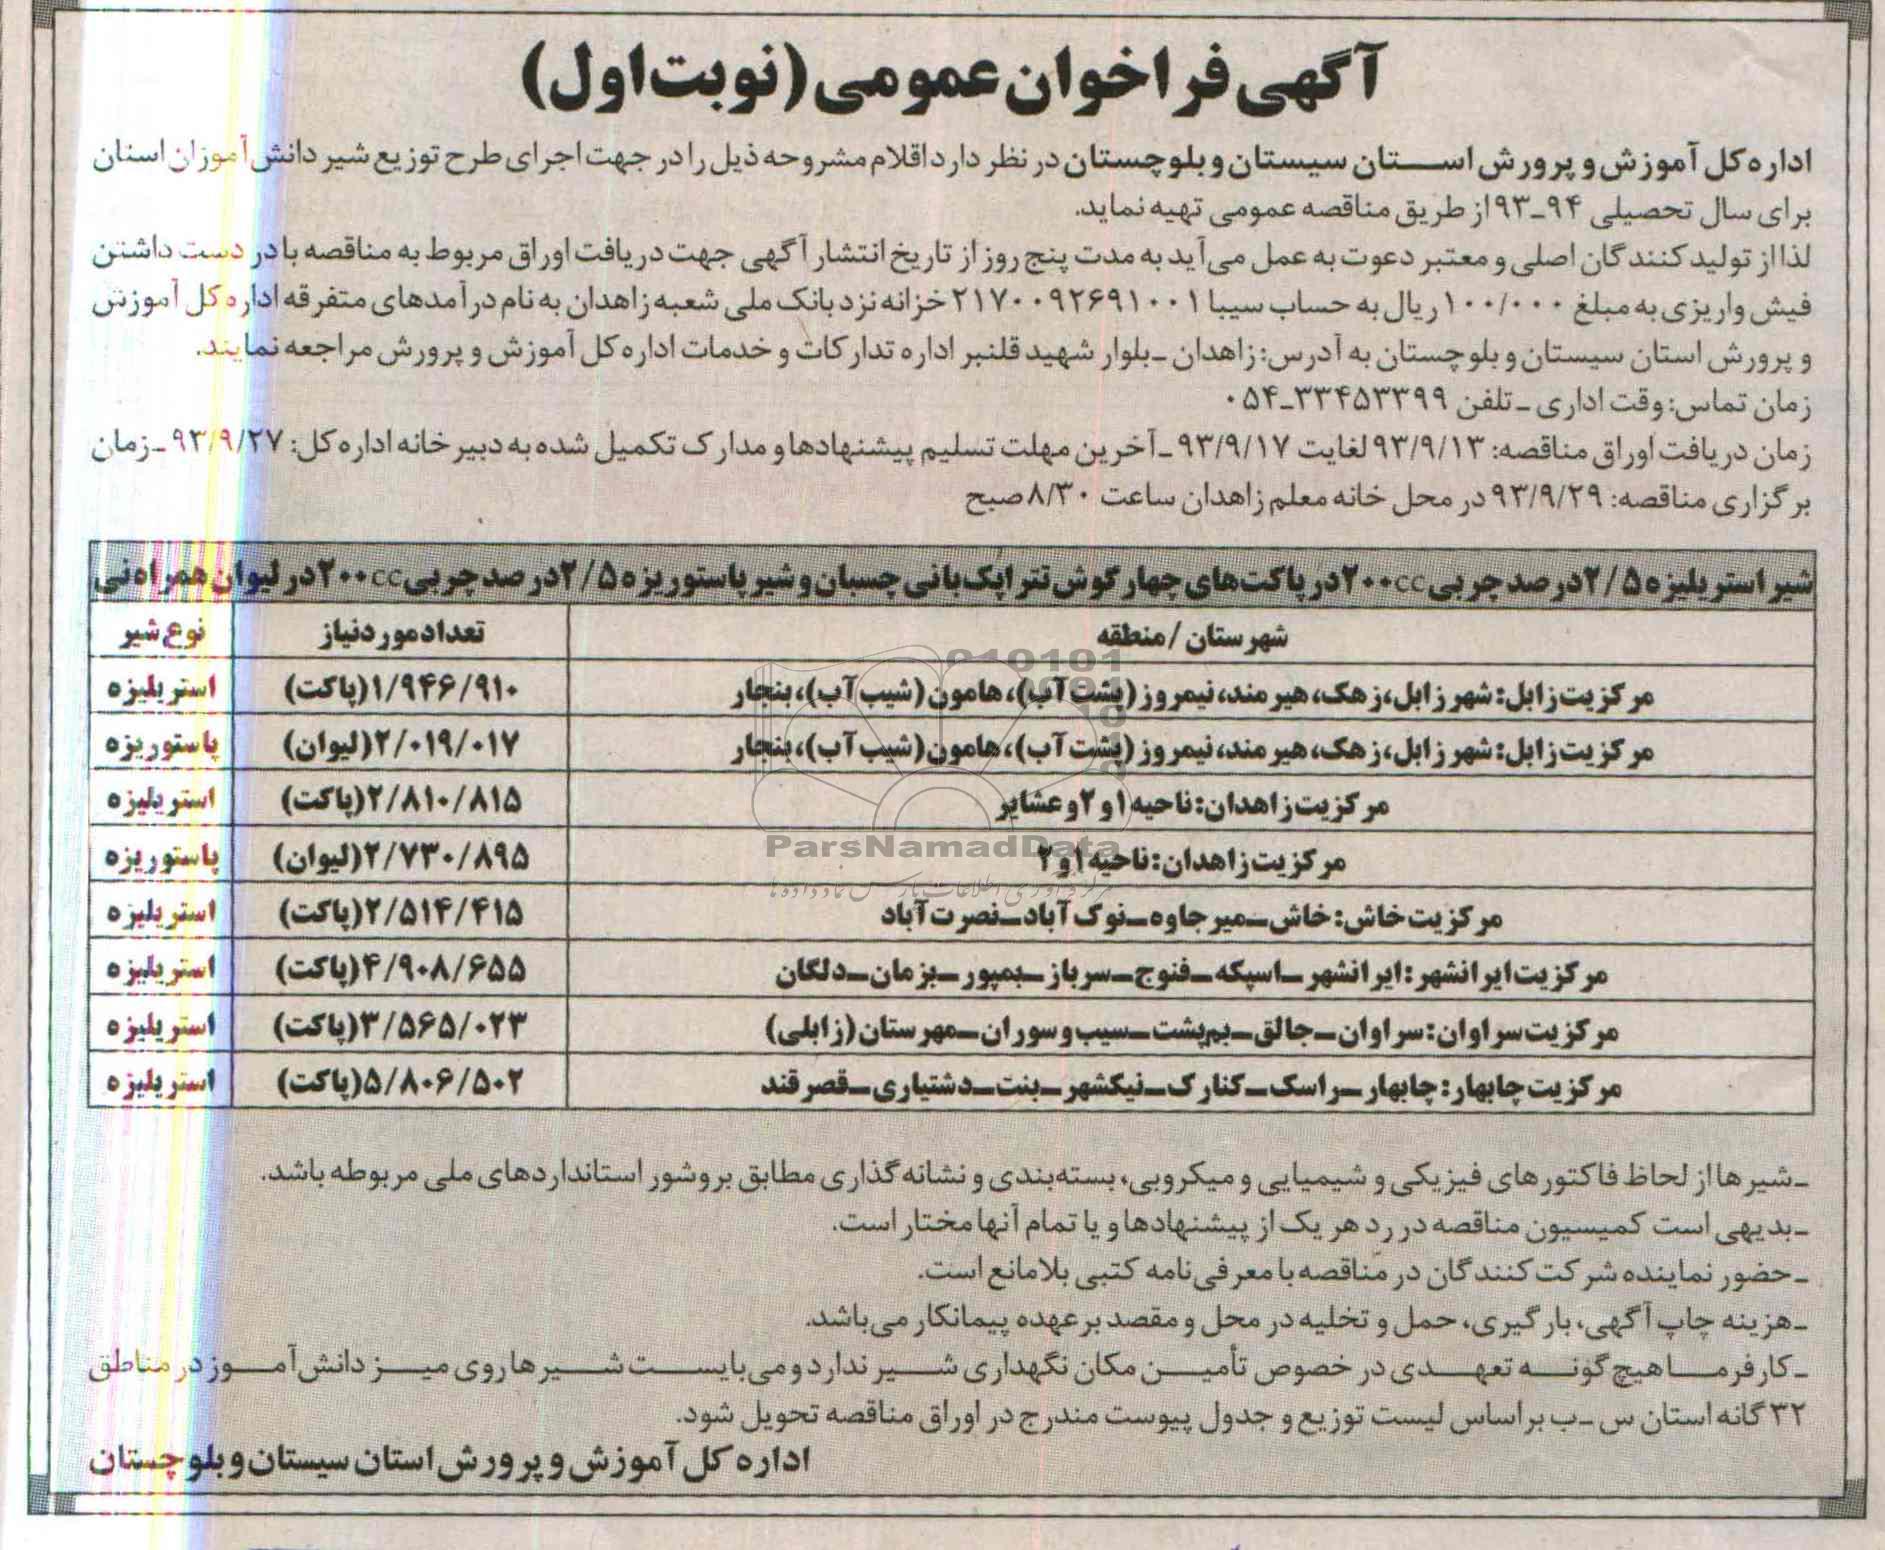 آگهی فراخوان عمومی (نوبت اول)
اداره کل آموزش و پرورش استان سیستان و بلوچستان در نظر دارد اقلام مشروحه ذیل را در جهت اجرای طرح توزیع شیر دانش‌آموزان استان
برای سال تحصیلی ۹۴-۹۳ از طریق مناقصه عمومی تهیه نماید.
لذا از تولیدکنندگان اصلی و معتبر دعوت به عمل می‌آید به مدت پنج روز از تاریخ انتشار آگهی جهت دریافت اوراق مربوط به مناقصه با در دست داشتن
فیش واریزی به مبلغ ۱۰۰/۰۰۰ ریال به حساب سیبا ۲۱۷۰۰۹۲۶۹۱۰۰۱ خزانه نزد بانک ملی شعبه زاهدان به نام درآمدهای متفرقه اداره کل آموزش
و پرورش استان سیستان و بلوچستان به آدرس: زاهدان - بلوار شهید قلنبر اداره تدارکات و خدمات اداره کل آموزش و پرورش مراجعه نمایند.
زمان تماس: وقت اداری - تلفن ۳۳۴۵۳۳۹۹-۰۵۴
زمان دریافت اوراق مناقصه: ۹۳/۹/۱۳ لغایت ۹۳/۹/۱۷ - آخرین مهلت تسلیم پیشنهادها و مدارک تکمیل شده به دبیرخانه اداره کل: ۹۳/۹/۲۷ - زمان
برگزاری مناقصه: ۹۳/۹/۲۹ در محل خانه معلم زاهدان ساعت ۸/۳۰ صبح
شیر استریلیزه ۲/۵ درصد چربی ۲۰۰cc در پاکت‌های چهارگوش تتراپک با نی چسبان و شیر پاستوریزه ۲/۵ درصد چربی ۲۰۰cc در لیوان همراه نی
شهرستان / منطقه تعداد مورد نیاز نوع شیر
مرکزیت زابل: شهر زابل، زهک، هیرمند، نیمروز (پشت آب)، هامون (شیب آب)، بنجار ۱/۹۴۶/۹۱۰ (پاکت) استریلیزه
مرکزیت زابل: شهر زابل، زهک، هیرمند، نیمروز (پشت آب)، هامون (شیب آب)، بنجار ۲/۰۱۹/۰۱۷ (لیوان) پاستوریزه
مرکزیت زاهدان: ناحیه ۱ و ۲ و عشایر ۲/۸۱۰/۸۱۵ (پاکت) استریلیزه
مرکزیت زاهدان: ناحیه ۱ و ۲ ۲/۷۳۰/۸۹۵ (لیوان) پاستوریزه
مرکزیت خاش: خاش - میرجاوه - نوک آباد - نصرت آباد ۲/۵۱۴/۴۱۵ (پاکت) استریلیزه
مرکزیت ایرانشهر: ایرانشهر - اسپکه - فنوج - سرباز - بمپور - بزمان - دلگان ۴/۹۰۸/۶۵۵ (پاکت) استریلیزه
مرکزیت سراوان: سراوان - جالق - بم‌پشت - سیب و سوران - مهرستان (زابلی) ۳/۵۶۵/۰۲۳ (پاکت) استریلیزه
مرکزیت چابهار: چابهار - راسک - کنارک - نیکشهر - بنت - دشتیاری - قصرقند ۵/۸۰۶/۵۰۲ (پاکت) استریلیزه
ParsNamadData
مرکز فرآوری اطلاعات پارس نماد داده‌ها
- شیرها از لحاظ فاکتورهای فیزیکی و شیمیایی و میکروبی، بسته‌بندی و نشانه‌گذاری مطابق بروشور استانداردهای ملی مربوطه باشد.
- بدیهی است کمیسیون مناقصه در رد هر یک از پیشنهادها و یا تمام آنها مختار است.
- حضور نماینده شرکت‌کنندگان در مناقصه با معرفی‌نامه کتبی بلامانع است.
- هزینه چاپ آگهی، بارگیری، حمل و تخلیه در محل و مقصد بر عهده پیمانکار می‌باشد.
- کارفرما هیچ‌گونه تعهدی در خصوص تأمین مکان نگهداری شیر ندارد و می‌بایست شیرها روی میز دانش‌آموز در مناطق
۳۲ گانه استان س - ب براساس لیست توزیع و جدول پیوست مندرج در اوراق مناقصه تحویل شود.
اداره کل آموزش و پرورش استان سیستان و بلوچستان